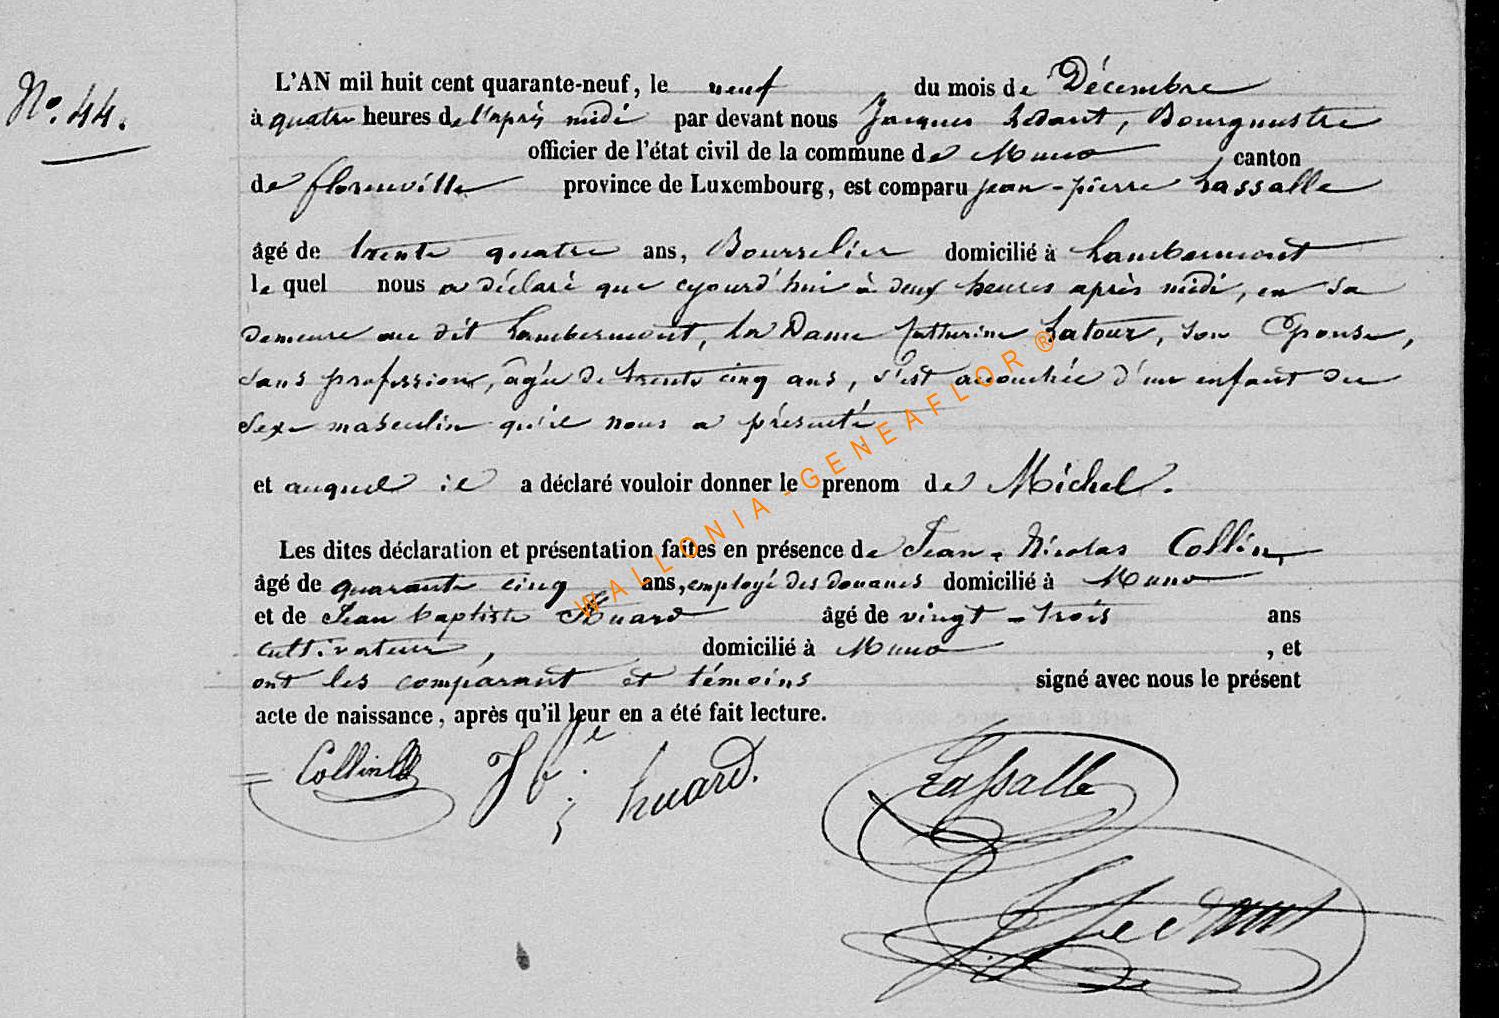 No. 44.
L'AN mil huit cent quarante-neuf, le neuf du mois de Décembre
à quatre heures de l'après midi par devant nous Jacques Ledant, Bourgmestre
officier de l'état civil de la commune de Muno, canton
de florenville province de Luxembourg, est comparu jean-pierre Lassalle
âgé de trente quatre ans, Bourrelier domicilié à Lambermont
le quel nous a déclaré que cejourd'hui à deux heures après midi, en sa
demeure au dit Lambermont, la Dame Catherine Latour, son Epouse,
sans profession, âgée de trente cinq ans, s'est accouchée d'un enfant du
sexe masculin qu'il nous a présenté
et auquel il a déclaré vouloir donner le prenom de Michel.
Les dites déclaration et présentation faites en présence de Jean-Nicolas Collin,
âgé de quarante cinq ans, employé des douanes domicilié à Muno
et de Jean baptiste Huard âgé de vingt-trois ans
cultivateur, domicilié à Muno, et
ont les comparant et témoins signé avec nous le présent
acte de naissance, après qu'il leur en a été fait lecture.
Collin J bte huard. Lassalle
Ledant
WALLONIA-GENEAFLOR®